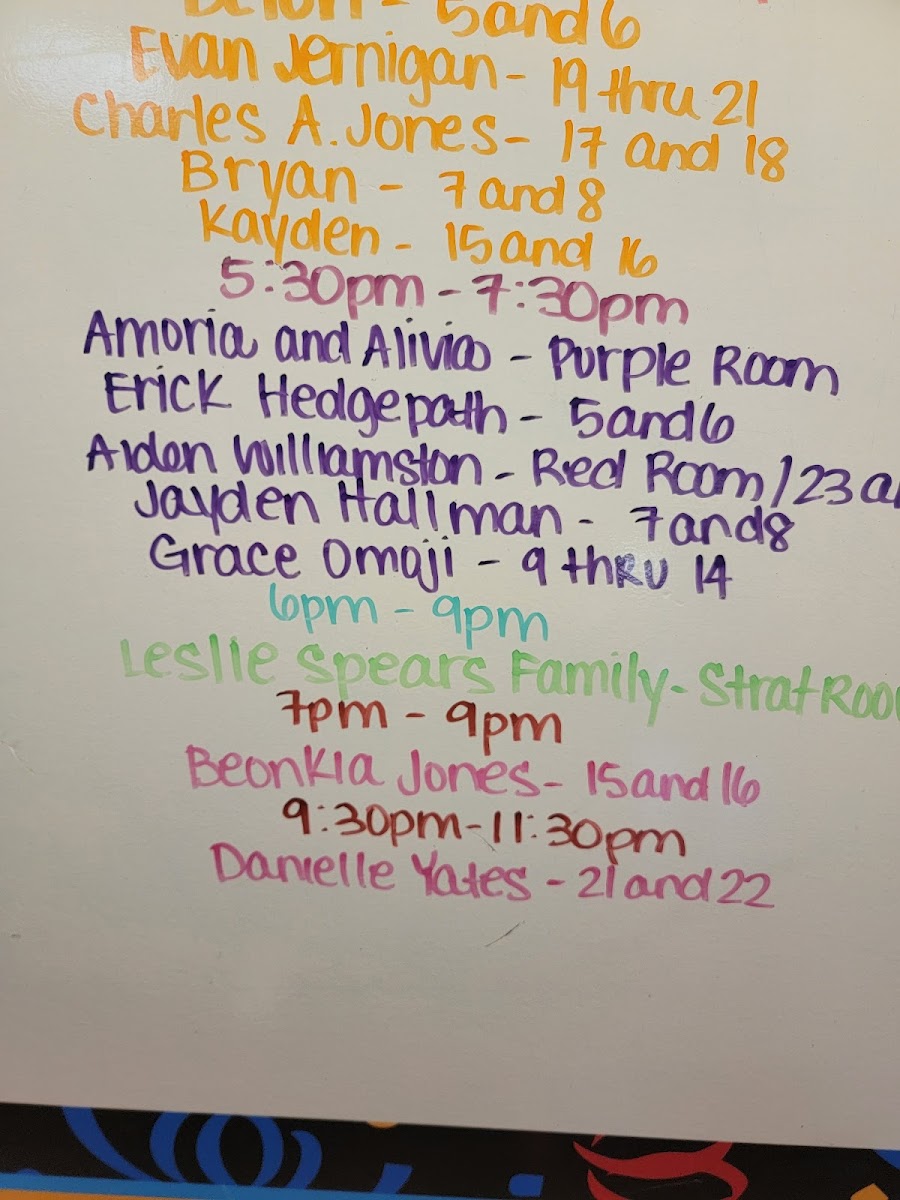 5and6
Evan Jernigan- 19 thru 21
Charles A. Jones- 17 and 18
Bryan - 7 and 8
Kayden - 15 and 16
5:30pm - 7:30pm
Amoria and Alivia - Purple Room
Erick Hedgepath - 5and6
Aiden Williamston - Red Room / 23
Jayden Hallman - 7 and 8
Grace Omoji - 9 thru 14
6pm - 9pm
Leslie Spears Family- Strat
7pm - 9pm
Beonkia Jones- 15 and 16
9:30pm-11:30pm
Danielle Yates - 21 and 22